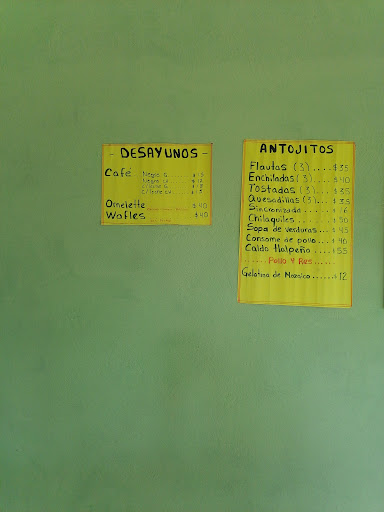 - DESAYUNOS -
Café
Omelette $40
Wafles $40
ANTOJITOS
Flautas (3)....$35
Enchiladas (3)....$40
Tostadas (3).....$35
Quesadillas (3)...$35
Sincronizada......$16
Chilaquiles.......$50
Sopa de verduras...$45
Consome de pollo...$40
Caldo tlalpeño....$55
......Pollo Y Res......
Gelatina de Mozaico.....$12